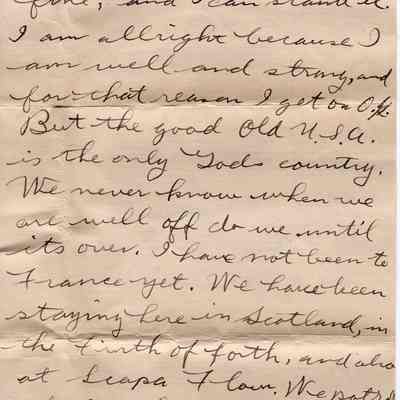 fine, and I can stand it.
I am allright because I
am well and strong, and
for that reason I get on O.K.
But the good Old U.S.A.
is the only Gods country.
We never know when we
are well off do we until
its over. I have not been to
France yet. We have been
staying here in Scotland, in
the Firth of forth, and also
at Scapa Flow. We